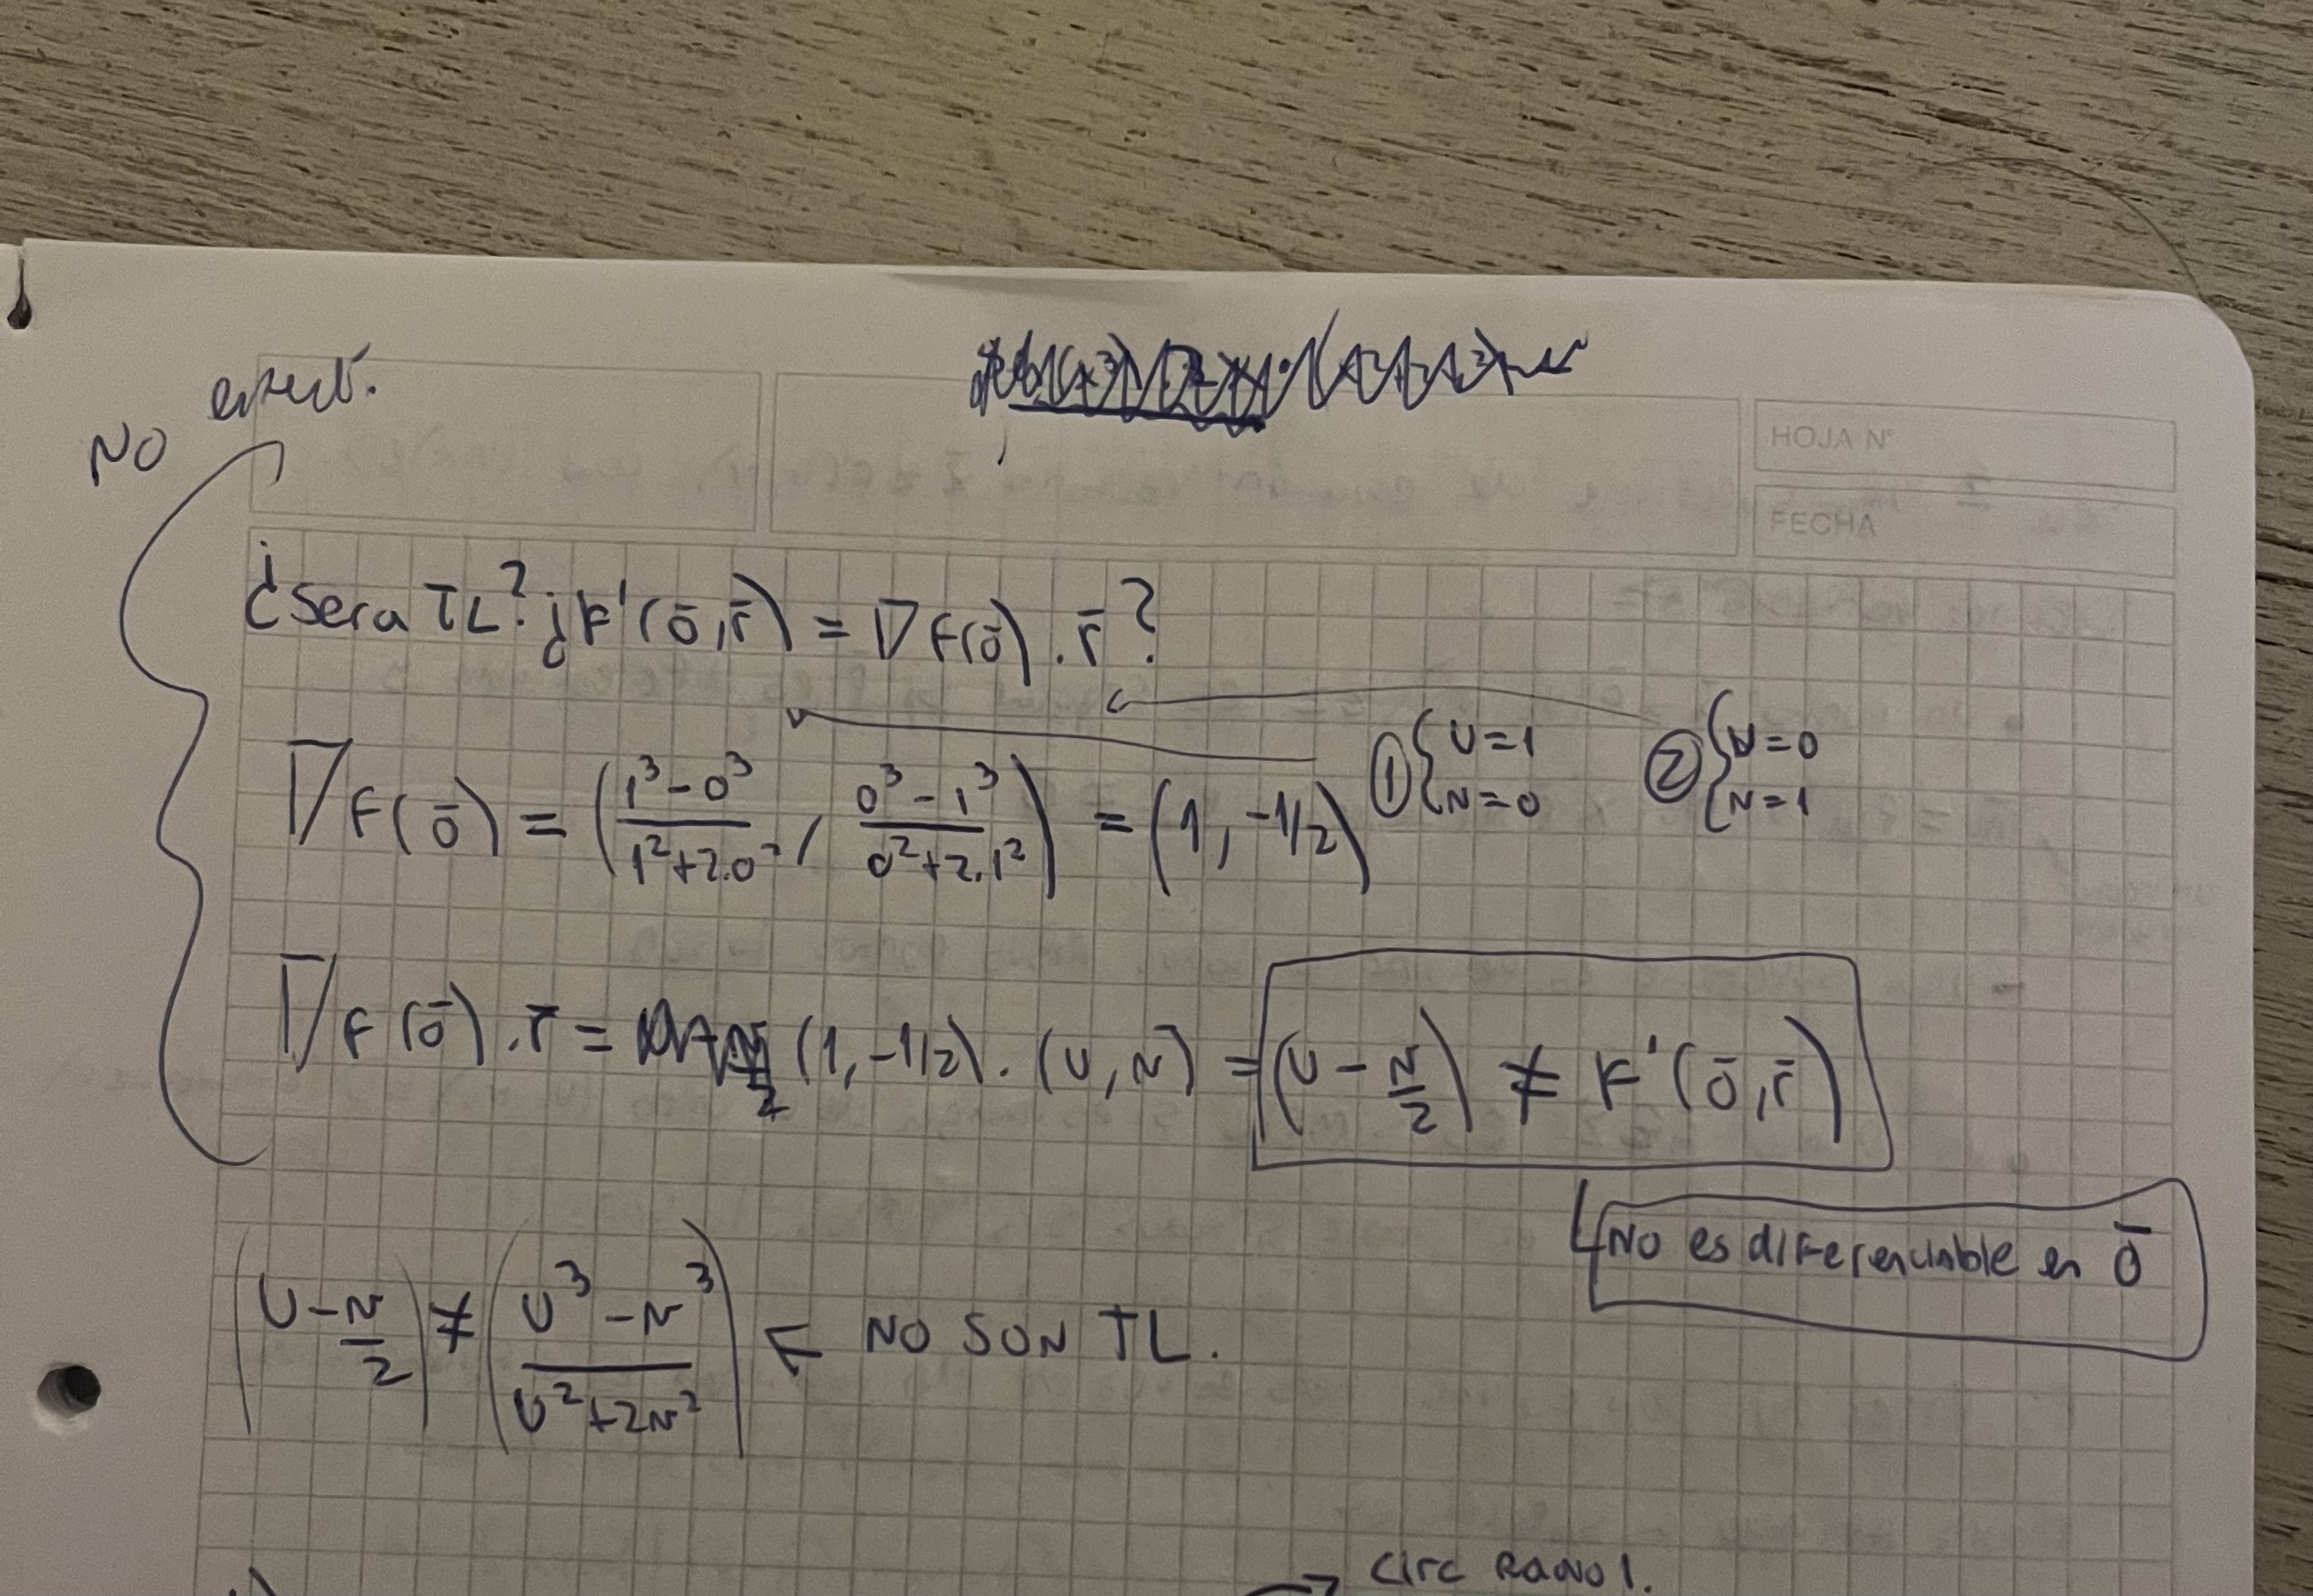 NO
HOJA N°
FECHA
¿Sera TL? ¿F'(ō,r̄) = ∇F(ō).r̄?
∇F(ō) = (1³-0³/1²+2.0², 0³-1³/0²+2.1²) = (1, -1/2) ① { U=1 V=0 ② { U=0 V=1
∇F(ō).r̄ = (1,-1/2).(U,V) = (U - V/2) ≠ F'(ō,r̄)
No es diferenciable en ō
(U - V/2) ≠ (U³-V³/U²+2V²) ← NO SON TL.
→ circ RADIO 1.